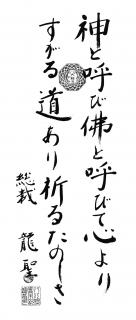 神と呼び佛と呼びて心より
すがる道あり祈るたのしさ
総裁
龍聖